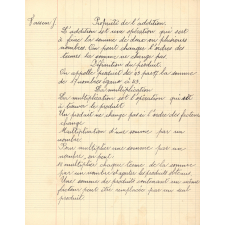 Propriété de l'addition.
L'addition est une opération qui sert
à faire la somme de deux ou plusieurs
nombres. On peut changer l'ordre des
la somme ne change pas.
Définition du produit.
On appelle produit de 63 par 17 la somme
de 17 nombres égaux à 63.
multiplication
multiplication est l'opération qui
à trouver le produit
Un produit ne change pas l'ordre des facteurs
change
Multiplication d'une somme par un
nombre.
Pour multiplier une somme par un
nombre, on peut:
multiplier chaque terme de la somme
par un nombre et ajouter les produits obtenus.
Une somme de produits contenant un même
facteur peut être remplacée par un seul
produit